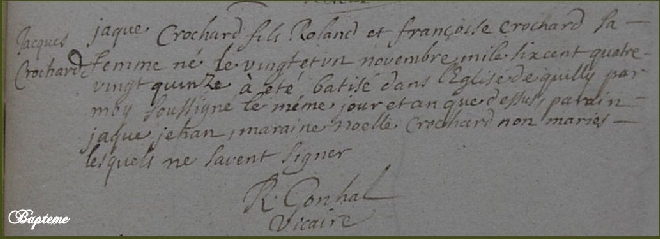 Jacques
Crochard
jaque Crochard fils Roland et françoise Crochard sa
femme né le vingt et vn novembre mile sixcent quatre
vingt quinze à été batisé dans l'Eglise de quilly par
moy soussigné le méme jour et an que dessus, parain
jaque jehan, maraine noelle Crochard non mariés
lesquels ne savent signer
R. Gonhal
Vicaire
Bapteme